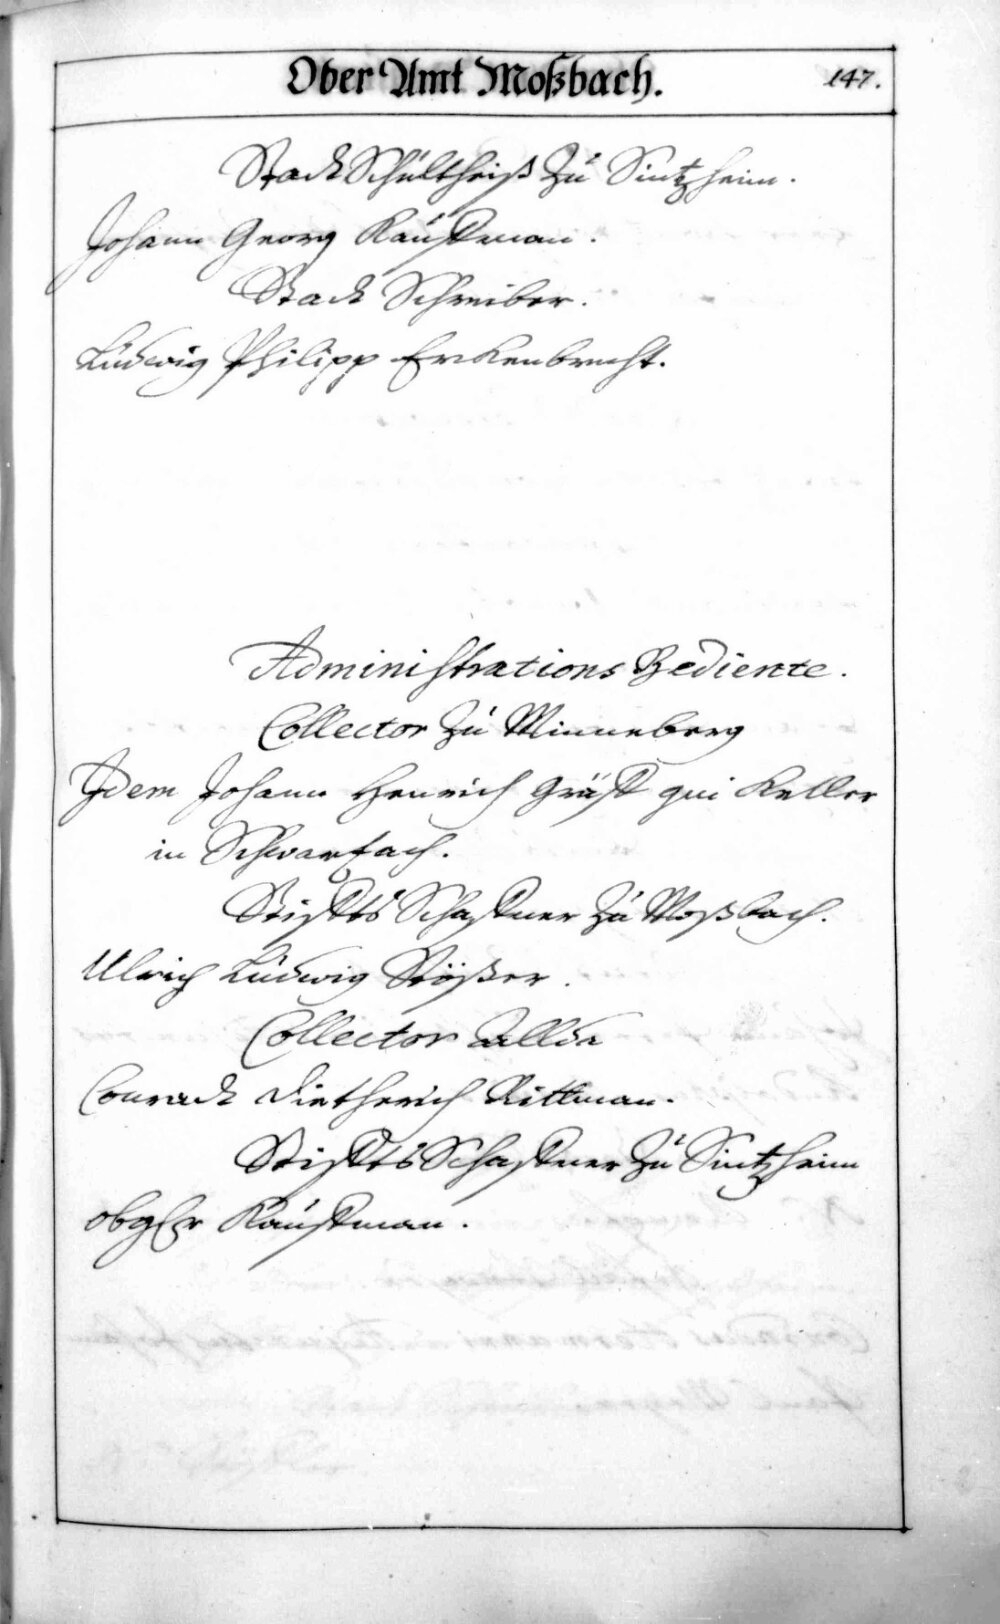 Ober Amt Moßbach. 147.
Stadt Schultheiß zu Sintzheim.
Johann Georg Kauffman.
Stadt Schreiber.
Ludwig Philipp Erckenbrecht.
Administrations Bediente.
Collector zu Minneberg
Idem Johann Henrich Gräff qui Keller
in Schwartzach.
Stiffts Schaffner zu Moßbach.
Ulrich Ludwig Stößer.
Collector allda
Conradt Dietherich Rittman.
Stiffts Schaffner zu Sintzheim
obgser Kauffman.